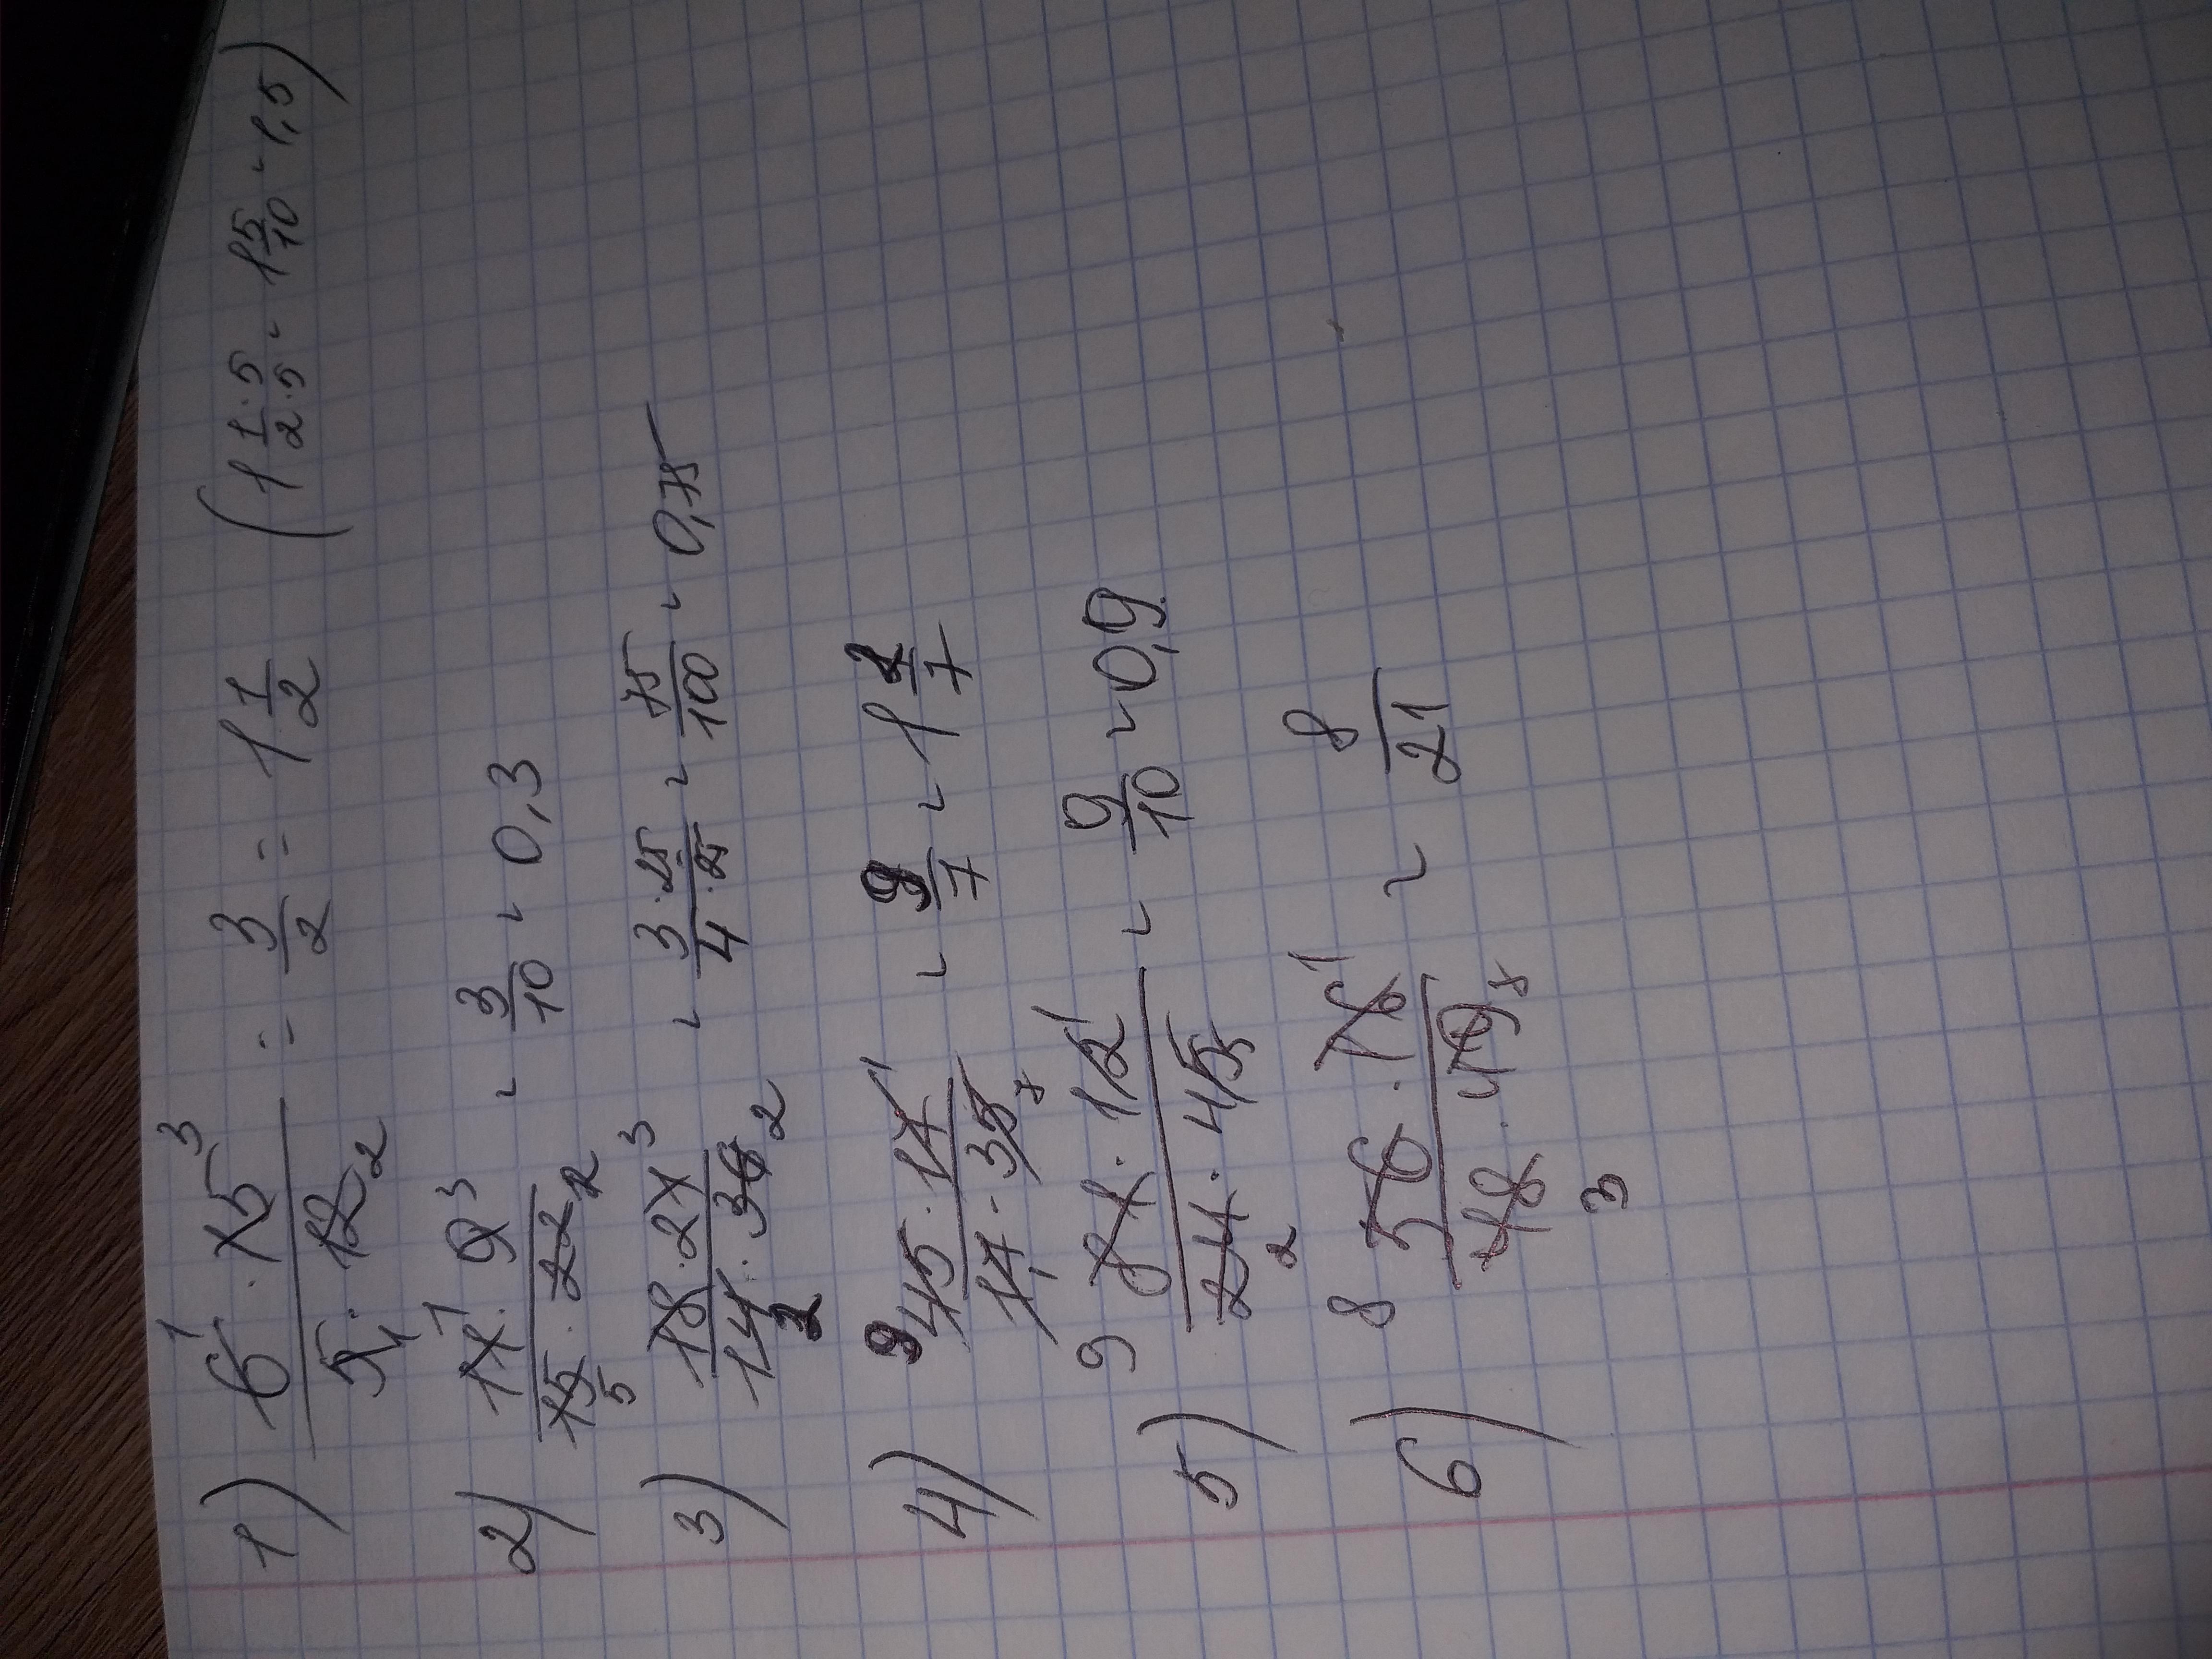 1) (6¹ · 15³)/(5₁ · 12₂) = 3/2 = 1 1/2 (1 1·5/2·5 = 1 5/10 = 1,5)
2) (11¹ · 9³)/(15₅ · 22₂) = 3/10 = 0,3
3) (18 · 21³)/(14₂ · 36₂) = 3·25/4·25 = 75/100 = 0,75
4) (⁹45 · 17¹)/(17 · 35₇) = 9/7 = 1 2/7
5) (⁹81 · 12¹)/(24₂ · 45₅) = 9/10 = 0,9
6) (⁸56 · 16¹)/(48₃ · 49₇) = 8/21